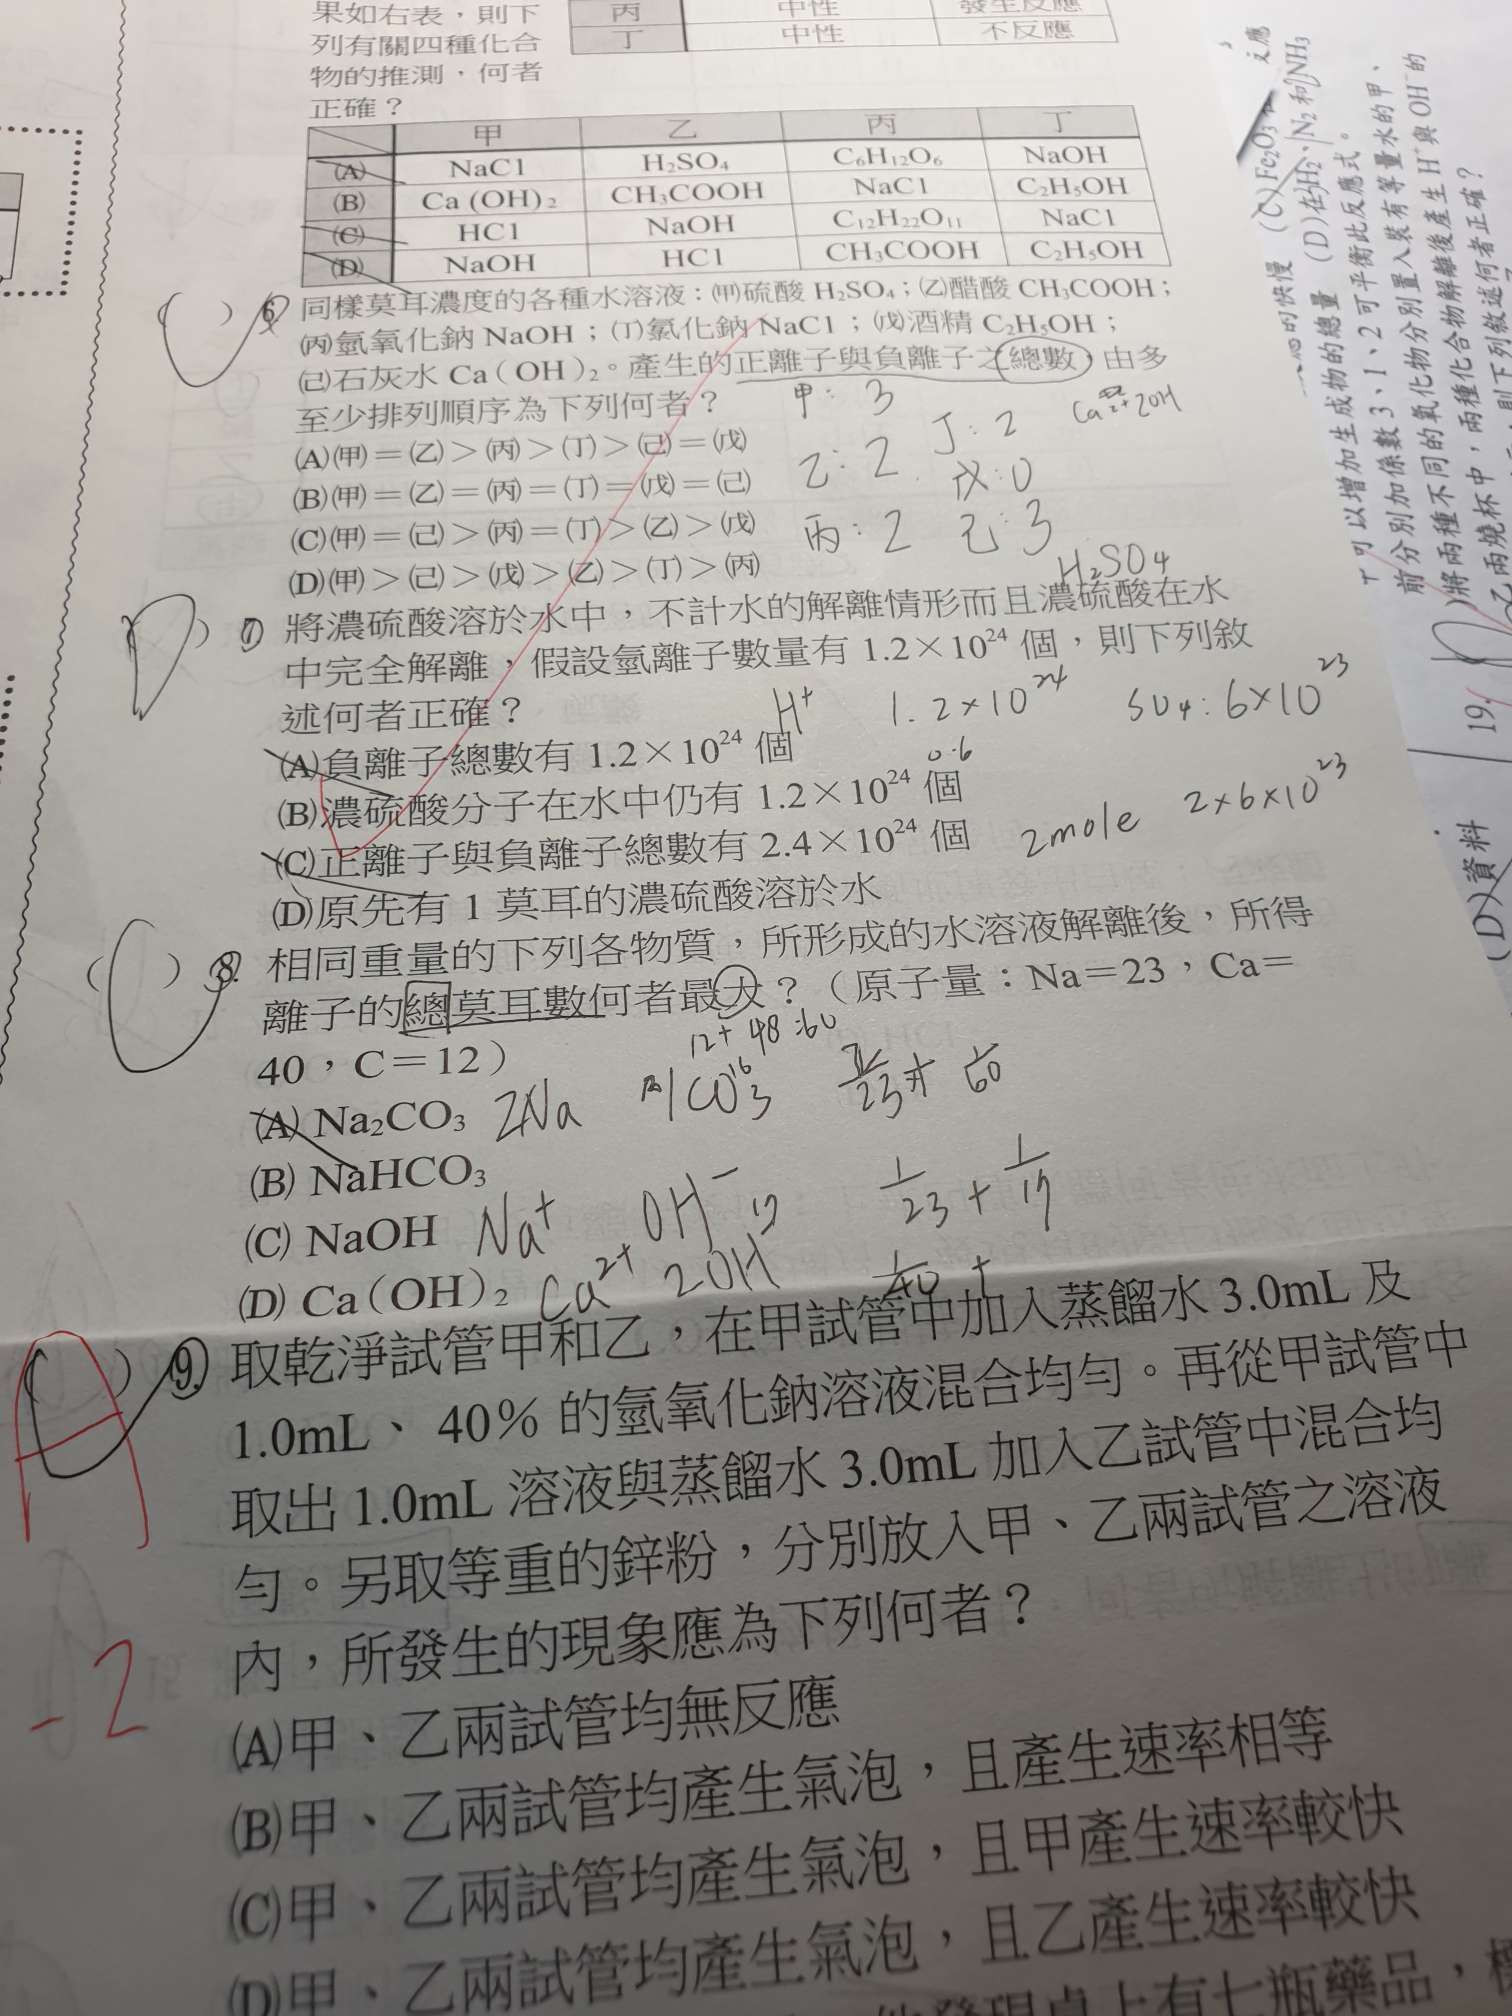 果如右表，則下
列有關四種化合
物的推測，何者
正確？
丙 中性 發生反應
丁 中性 不反應
甲 乙 丙 丁
(A) NaCl H₂SO₄ C₆H₁₂O₆ NaOH
(B) Ca(OH)₂ CH₃COOH NaCl C₂H₅OH
(C) HCl NaOH C₁₂H₂₂O₁₁ NaCl
(D) NaOH HCl CH₃COOH C₂H₅OH
(C) 6. 同樣莫耳濃度的各種水溶液：(甲)硫酸 H₂SO₄；(乙)醋酸 CH₃COOH；
(丙)氫氧化鈉 NaOH；(丁)氯化鈉 NaCl；(戊)酒精 C₂H₅OH；
(己)石灰水 Ca(OH)₂。產生的正離子與負離子之總數，由多
至少排列順序為下列何者？
甲：3
Ca²⁺ 2OH
(A)(甲)＝(乙)＞(丙)＞(丁)＞(己)＝(戊)
乙：2 丁：2
(B)(甲)＝(乙)＝(丙)＝(丁)＝(戊)＝(己)
戊：0
(C)(甲)＝(己)＞(丙)＝(丁)＞(乙)＞(戊)
丙：2 己：3
(D)(甲)＞(己)＞(戊)＞(乙)＞(丁)＞(丙)
H₂SO₄
(D) 7. 將濃硫酸溶於水中，不計水的解離情形而且濃硫酸在水
中完全解離，假設氫離子數量有 1.2×10²⁴ 個，則下列敘
述何者正確？
H⁺ 1.2×10²⁴ SO₄：6×10²³
(A)負離子總數有 1.2×10²⁴ 個
0.6
(B)濃硫酸分子在水中仍有 1.2×10²⁴ 個
(C)正離子與負離子總數有 2.4×10²⁴ 個
2mole 2×6×10²³
(D)原先有 1 莫耳的濃硫酸溶於水
(C) 8. 相同重量的下列各物質，所形成的水溶液解離後，所得
離子的總莫耳數何者最大？（原子量：Na＝23，Ca＝
40，C＝12）
12+48=60
(A) Na₂CO₃ 2Na CO₃ 16
(B) NaHCO₃
(C) NaOH Na⁺ OH⁻ 17 1/23 + 1/17
(D) Ca(OH)₂ Ca²⁺ 2OH 1/40 +
A
(C) 9. 取乾淨試管甲和乙，在甲試管中加入蒸餾水 3.0mL 及
1.0mL、40% 的氫氧化鈉溶液混合均勻。再從甲試管中
取出 1.0mL 溶液與蒸餾水 3.0mL 加入乙試管中混合均
勻。另取等重的鋅粉，分別放入甲、乙兩試管之溶液
內，所發生的現象應為下列何者？
-2
(A)甲、乙兩試管均無反應
(B)甲、乙兩試管均產生氣泡，且產生速率相等
(C)甲、乙兩試管均產生氣泡，且甲產生速率較快
(D)甲、乙兩試管均產生氣泡，且乙產生速率較快
桌上有七瓶藥品，
(C) Fe₂O₃
的快慢
(D)在 H₂、N₂ 和 NH₃
可以增加生成物的總量
前分別加係數 3、1、2 可平衡此反應式。
)將兩種不同的氧化物分別置入裝有等量水的甲、
乙兩燒杯中，兩種化合物解離後產生 H⁺ 與 OH⁻ 的
則下列敘述何者正確？
19.
(D)資料